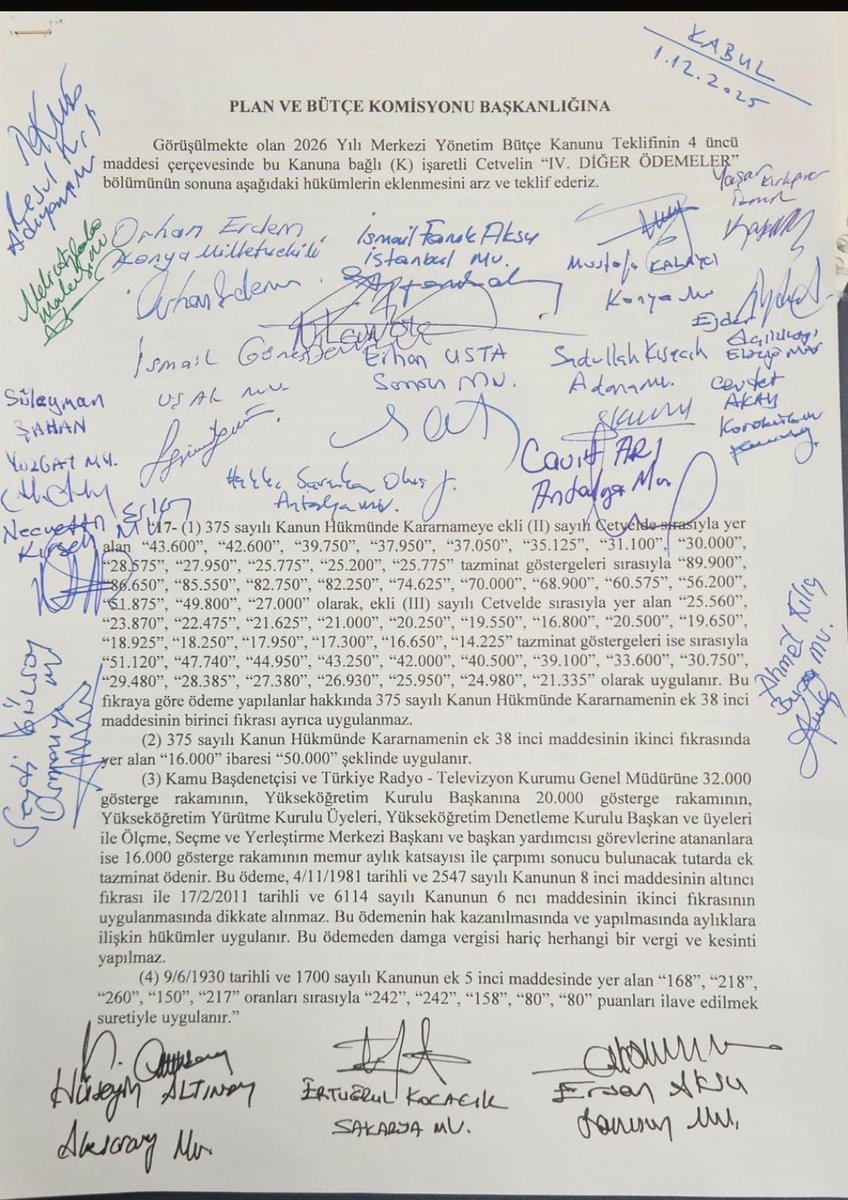 KABUL
1.12.2025
PLAN VE BÜTÇE KOMİSYONU BAŞKANLIĞINA
Görüşülmekte olan 2026 Yılı Merkezi Yönetim Bütçe Kanunu Teklifinin 4 üncü
maddesi çerçevesinde bu Kanuna bağlı (K) işaretli Cetvelin “IV. DİĞER ÖDEMELER”
bölümünün sonuna aşağıdaki hükümlerin eklenmesini arz ve teklif ederiz.
Orhan Erdem
Konya Milletvekili
İsmail Faruk Aksu
İstanbul Mv.
Mustafa KALAYCI
Konya Mv
Yaşar Kırkpınar
İzmir
İsmail Güneş
UŞAK MV.
Erhan USTA
Samsun Mv.
Sadullah Kısacık
Adana Mv.
Ejder
Açıkkapı
Elazığ Mv
Cevdet
AKAY
Karabük
Süleyman
ŞAHAN
YOZGAT MV.
Antalya Mv.
Cavit ARI
Antalya Mv
Necmettin Erkan
Kırşehir Mv
“17- (1) 375 sayılı Kanun Hükmünde Kararnameye ekli (II) sayılı Cetvelde sırasıyla yer
alan “43.600”, “42.600”, “39.750”, “37.950”, “37.050”, “35.125”, “31.100”, “30.000”,
“28.575”, “27.950”, “25.775”, “25.200”, “25.775” tazminat göstergeleri sırasıyla “89.900”,
“86.650”, “85.550”, “82.750”, “82.250”, “74.625”, “70.000”, “68.900”, “60.575”, “56.200”,
“51.875”, “49.800”, “27.000” olarak, ekli (III) sayılı Cetvelde sırasıyla yer alan “25.560”,
“23.870”, “22.475”, “21.625”, “21.000”, “20.250”, “19.550”, “16.800”, “20.500”, “19.650”,
“18.925”, “18.250”, “17.950”, “17.300”, “16.650”, “14.225” tazminat göstergeleri ise sırasıyla
“51.120”, “47.740”, “44.950”, “43.250”, “42.000”, “40.500”, “39.100”, “33.600”, “30.750”,
“29.480”, “28.385”, “27.380”, “26.930”, “25.950”, “24.980”, “21.335” olarak uygulanır. Bu
fıkraya göre ödeme yapılanlar hakkında 375 sayılı Kanun Hükmünde Kararnamenin ek 38 inci
maddesinin birinci fıkrası ayrıca uygulanmaz.
(2) 375 sayılı Kanun Hükmünde Kararnamenin ek 38 inci maddesinin ikinci fıkrasında
yer alan “16.000” ibaresi “50.000” şeklinde uygulanır.
(3) Kamu Başdenetçisi ve Türkiye Radyo - Televizyon Kurumu Genel Müdürüne 32.000
gösterge rakamının, Yükseköğretim Kurulu Başkanına 20.000 gösterge rakamının,
Yükseköğretim Yürütme Kurulu Üyeleri, Yükseköğretim Denetleme Kurulu Başkan ve üyeleri
ile Ölçme, Seçme ve Yerleştirme Merkezi Başkanı ve başkan yardımcısı görevlerine atananlara
ise 16.000 gösterge rakamının memur aylık katsayısı ile çarpımı sonucu bulunacak tutarda ek
tazminat ödenir. Bu ödeme, 4/11/1981 tarihli ve 2547 sayılı Kanunun 8 inci maddesinin altıncı
fıkrası ile 17/2/2011 tarihli ve 6114 sayılı Kanunun 6 ncı maddesinin ikinci fıkrasının
uygulanmasında dikkate alınmaz. Bu ödemenin hak kazanılmasında ve yapılmasında aylıklara
ilişkin hükümler uygulanır. Bu ödemeden damga vergisi hariç herhangi bir vergi ve kesinti
yapılmaz.
(4) 9/6/1930 tarihli ve 1700 sayılı Kanunun ek 5 inci maddesinde yer alan “168”, “218”,
“260”, “150”, “217” oranları sırasıyla “242”, “242”, “158”, “80”, “80” puanları ilave edilmek
suretiyle uygulanır.”
Ahmet Kılıç
Bursa Mv.
Hüseyin ALTINSOY
Aksaray Mv.
ERTUĞRUL KOCACIK
SAKARYA MV.
Ersan AKSU
Samsun Mv.